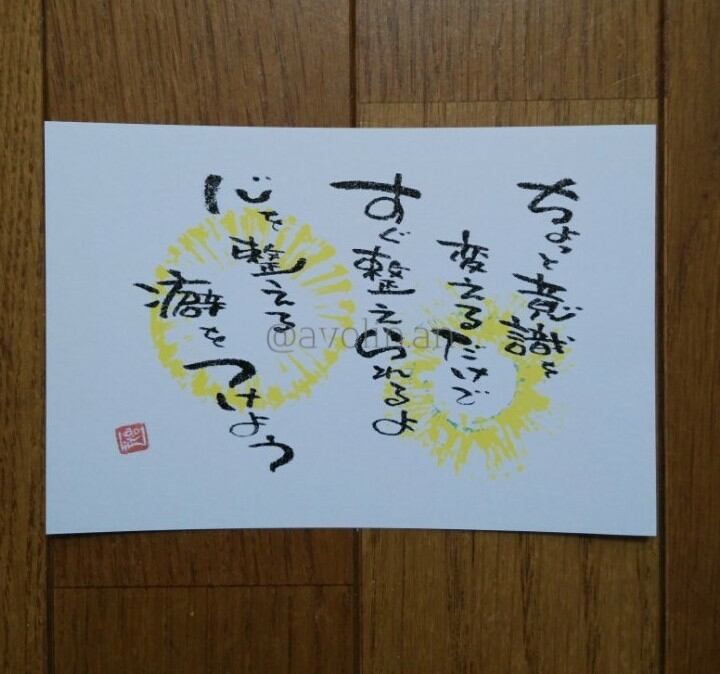 ちょっと意識を
変えるだけで
すぐ整えられるよ
心を整える
癖を
つけよう
@avohn.an